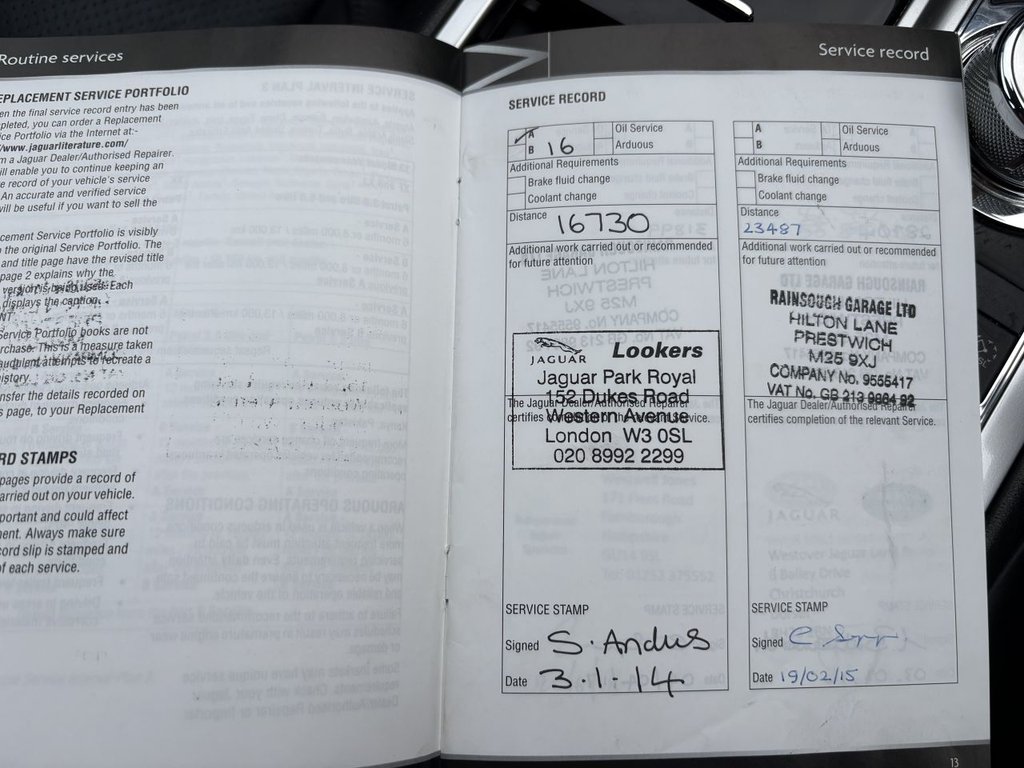 Routine services
EPLACEMENT SERVICE PORTFOLIO
en the final service record entry has been
pleted, you can order a Replacement
ice Portfolio via the Internet at:-
//www.jaguarliterature.com/
m a Jaguar Dealer/Authorised Repairer.
ill enable you to continue keeping an
e record of your vehicle's service
An accurate and verified service
will be useful if you want to sell the
cement Service Portfolio is visibly
the original Service Portfolio. The
and title page have the revised title
page 2 explains why the
version is being used. Each
displays the caption
NT
Service Portfolio books are not
rchase. This is a measure taken
audulent attempts to recreate a
istory.
nsfer the details recorded on
s page, to your Replacement
RD STAMPS
pages provide a record of
arried out on your vehicle.
portant and could affect
ent. Always make sure
cord slip is stamped and
of each service.
Service record
SERVICE RECORD
A
B 16
Oil Service
Arduous
Additional Requirements
Brake fluid change
Coolant change
Distance
16730
Additional work carried out or recommended
for future attention
JAGUAR Lookers
Jaguar Park Royal
152 Dukes Road
Western Avenue
London W3 0SL
020 8992 2299
The Jaguar Dealer/Authorised Repairer
certifies completion of the relevant Service.
SERVICE STAMP
Signed S. Andus
Date 3.1.14
A
B
Oil Service
Arduous
Additional Requirements
Brake fluid change
Coolant change
Distance
23487
Additional work carried out or recommended
for future attention
RAINSOUGH GARAGE LTD
HILTON LANE
PRESTWICH
M25 9XJ
COMPANY No. 9555417
VAT No. GB 213 9864 92
The Jaguar Dealer/Authorised Repairer
certifies completion of the relevant Service.
SERVICE STAMP
Signed
Date 19/02/15
13